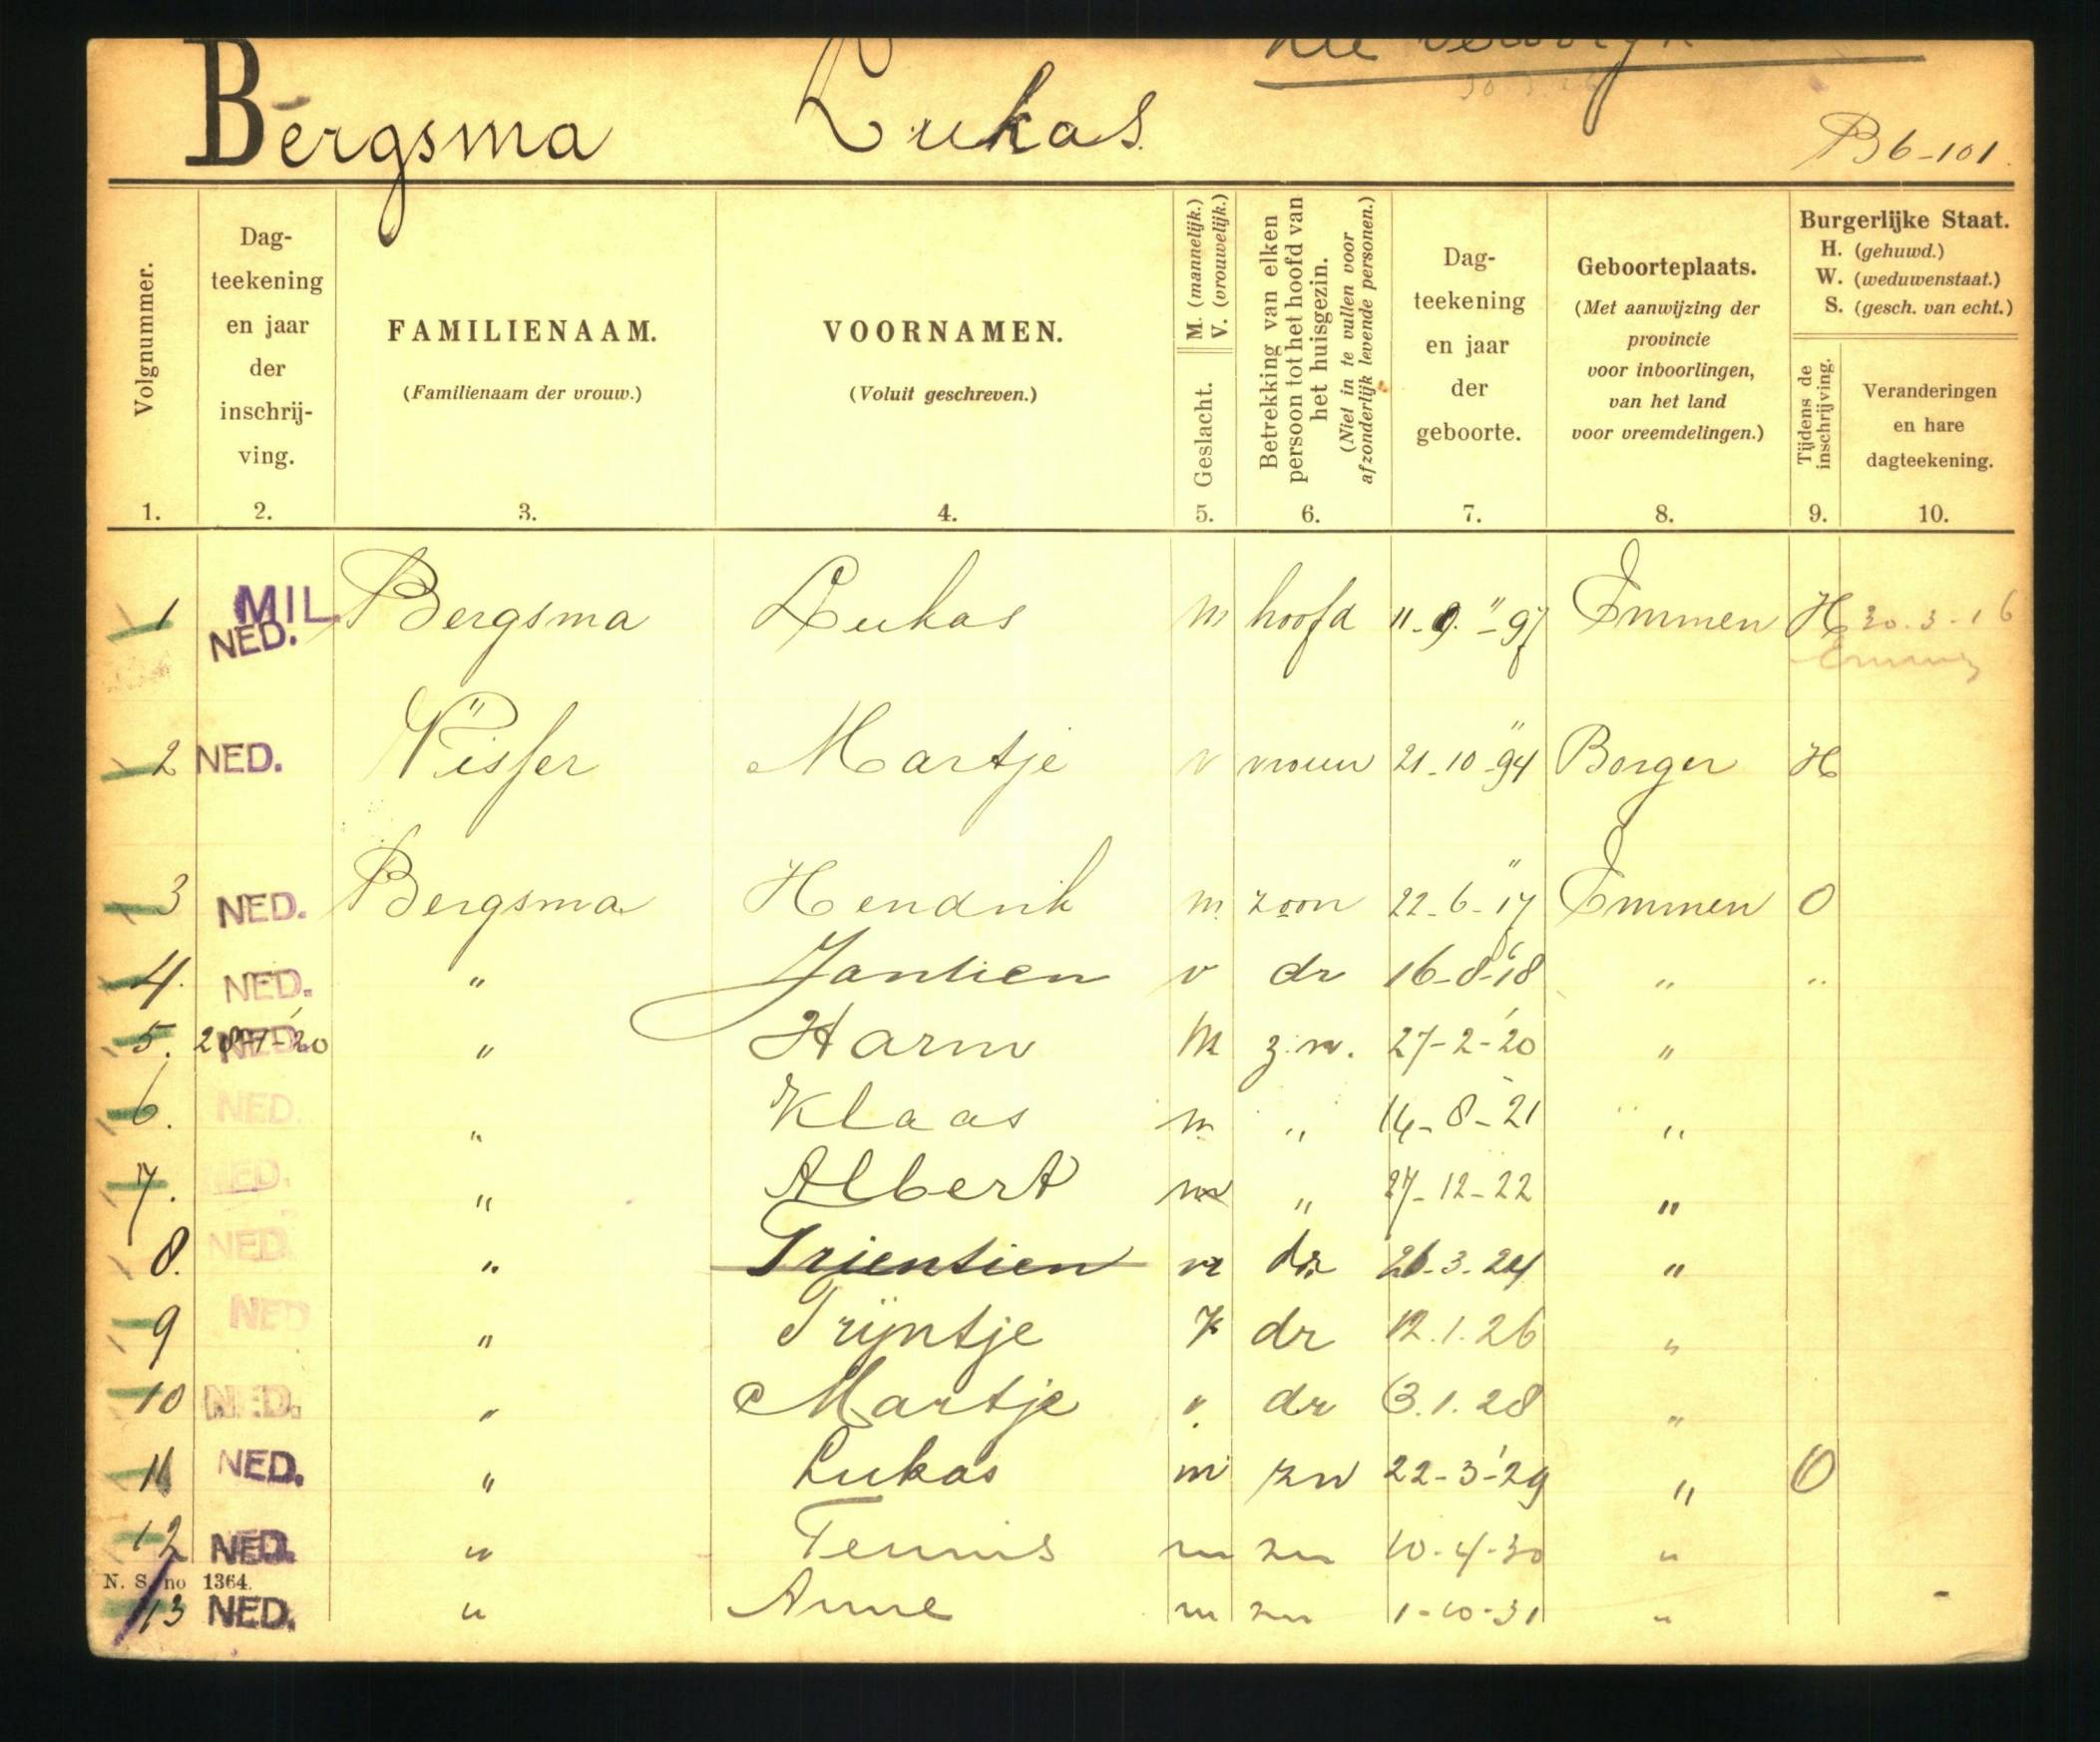 Bergsma Lukas
B6-101
Volgnummer.
Dag-
teekening
en jaar
der
inschrij-
ving.
FAMILIENAAM.
(Familienaam der vrouw.)
VOORNAMEN.
(Voluit geschreven.)
M. (mannelijk.)
V. (vrouwelijk.)
Geslacht.
Betrekking van elken
persoon tot het hoofd van
het huisgezin.
(Niet in te vullen voor
afzonderlijk levende personen.)
Dag-
teekening
en jaar
der
geboorte.
Geboorteplaats.
(Met aanwijzing der
provincie
voor inboorlingen,
van het land
voor vreemdelingen.)
Burgerlijke Staat.
H. (gehuwd.)
W. (weduwenstaat.)
S. (gesch. van echt.)
Tijdens de
inschrijving.
Veranderingen
en hare
dagteekening.
1. 2. 3. 4. 5. 6. 7. 8. 9. 10.
1 MIL. NED. Bergsma Lukas m hoofd 11-9-97 Emmen H 30.3-16
Emmen
2 NED. Visser Martje v vrouw 21-10-94 Borger H
3 NED. Bergsma Hendrik m zoon 22-6-17 Emmen O
4. NED. " Jantien v dr 16-8-18 " "
5. NED. " Harm m zn. 27-2-'20 "
6. NED. " Klaas m " 14-8-21 "
7. NED. " Albert m " 27-12-22 "
8. NED. " Trientien v dr 26.3.24 "
9 NED " Trijntje v dr 12.1.26 "
10 NED. " Martje v dr 3.1.28 "
11 NED. " Lukas m zn 22-3-'29 " O
12 NED. " Teunis m zn 10-4-30 "
N. S. no 1364.
13 NED. " Anne m zn 1-10-31 "